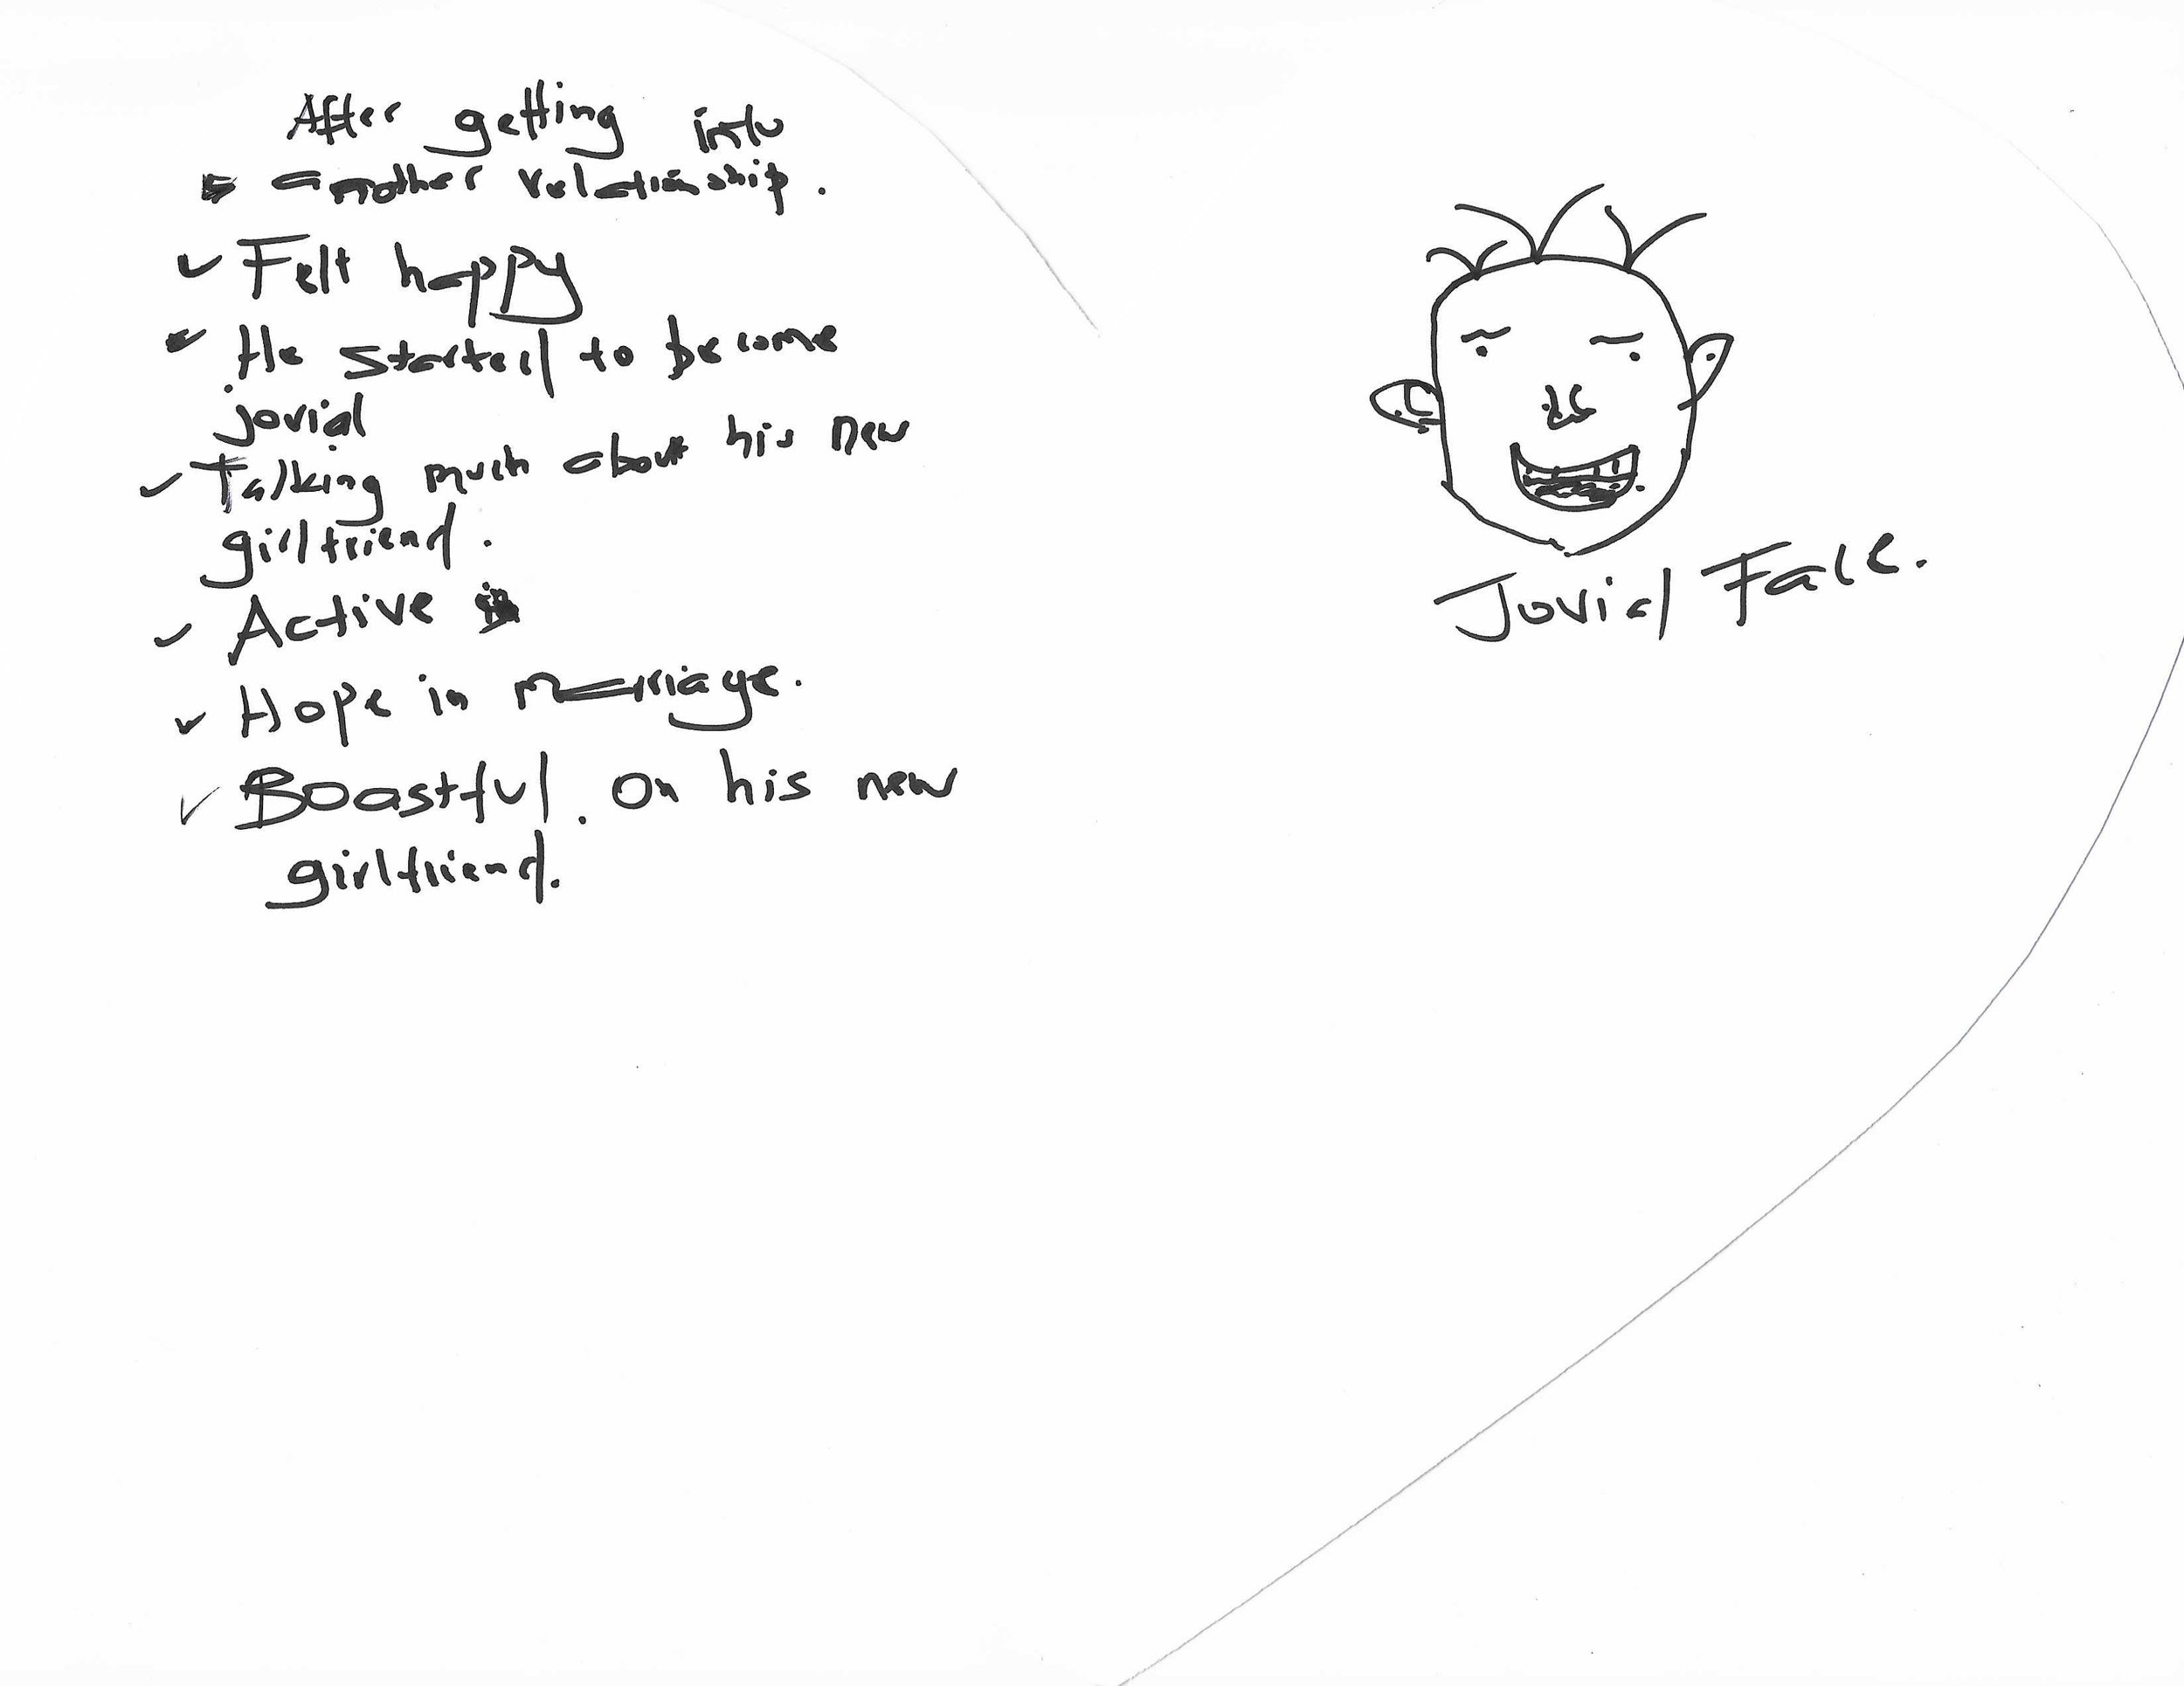 After getting into
another relationship.
Felt happy
He started to become
jovial
Talking much about his new
girlfriend.
Active
Hope in marriage.
Boastful. On his new
girlfriend.
Jovial Face.